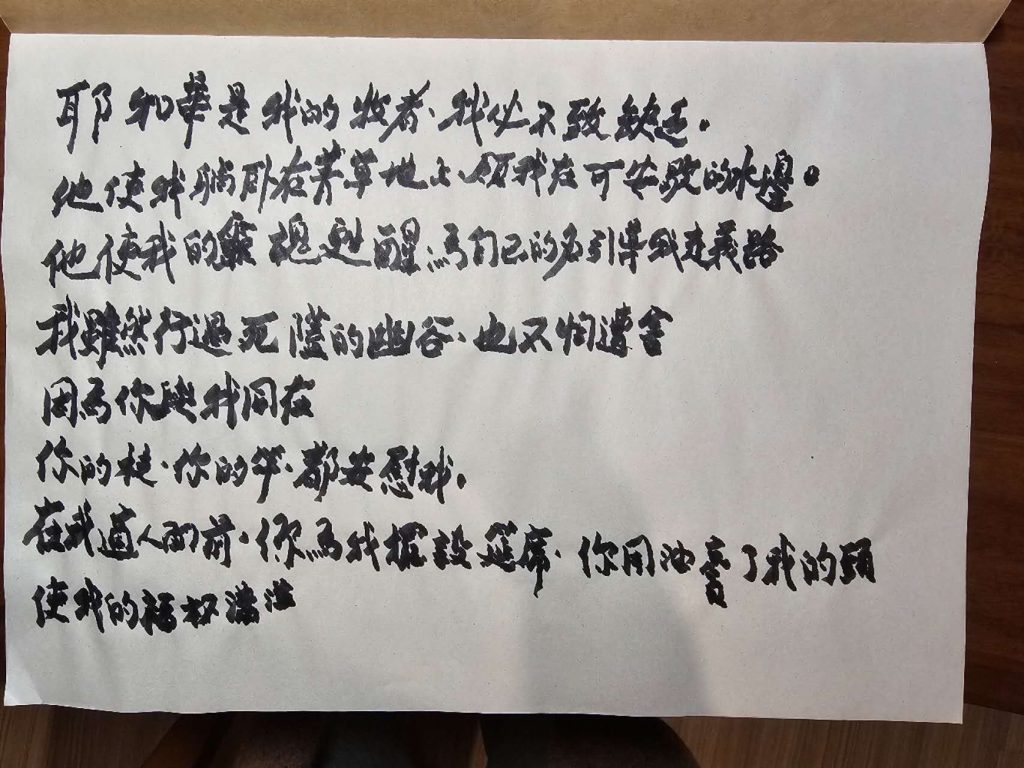 耶和華是我的牧者、我必不致缺乏。
他使我躺臥在菁草地上、領我在可安歇的水邊。
他使我的靈魂甦醒為自己的名引導我走義路
我雖然行過死蔭的幽谷、也不怕遭害
因為你與我同在
你的杖、你的竿、都安慰我。
在我敵人面前、你為我擺設筵席、你用油膏了我的頭
使我的福杯滿溢